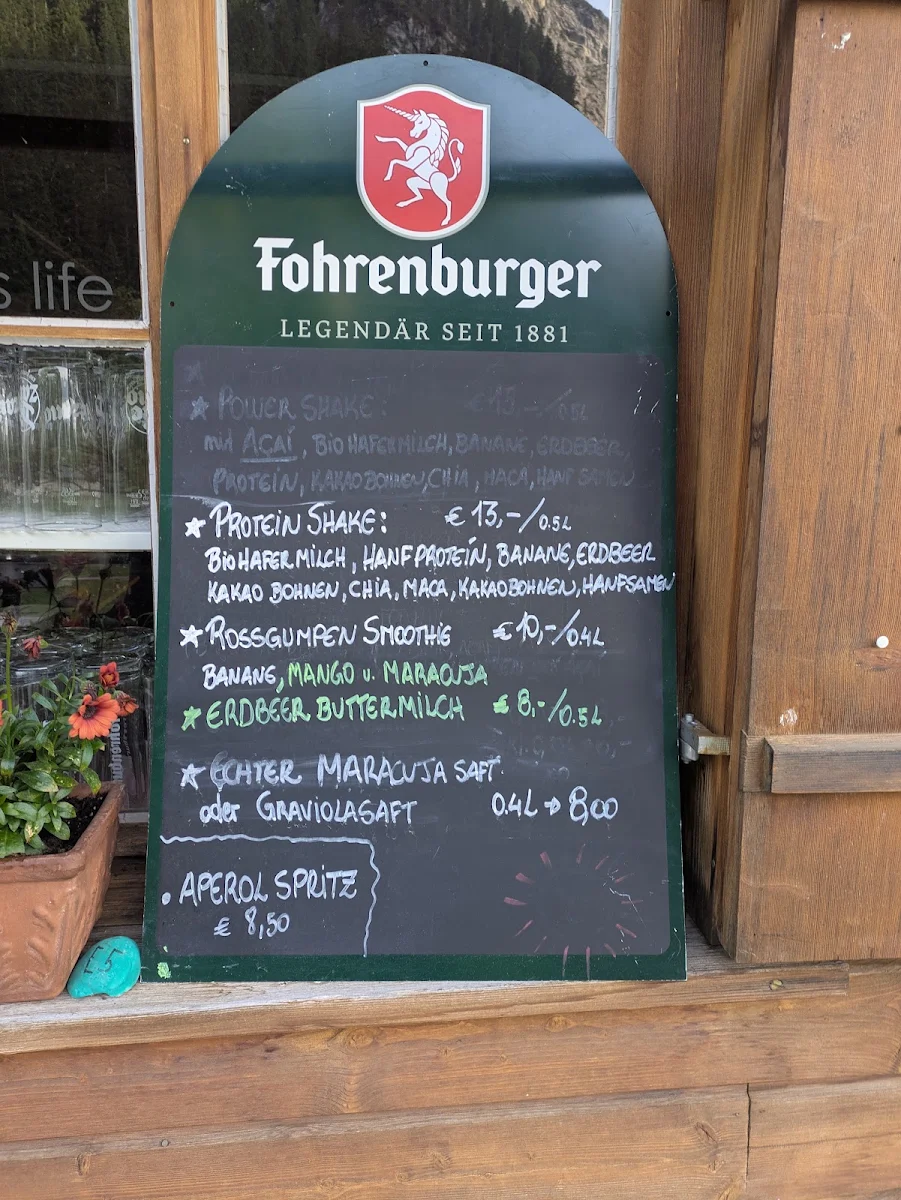 s life
Fohrenburger
LEGENDÄR SEIT 1881
POWER SHAKE: €15,-/0.5L
mit AÇAÍ, BIO HAFERMILCH, BANANE, ERDBEER,
PROTEIN, KAKAOBOHNEN, CHIA, MACA, HANFSAMEN
PROTEIN SHAKE: €13,-/0.5L
BIOHAFERMILCH, HANFPROTEÍN, BANANE, ERDBEER
KAKAO BOHNEN, CHIA, MACA, KAKAOBOHNEN, HANFSAMEN
ROSSGUMPEN SMOOTHIE €10,-/0.4L
BANANE, MANGO u. MARACUJA
ERDBEER BUTTERMILCH €8,-/0.5L
ECHTER MARACUJA SAFT
oder GRAVIOLASAFT 0.4L → 8,00
APEROL SPRITZ
€ 8,50
E5